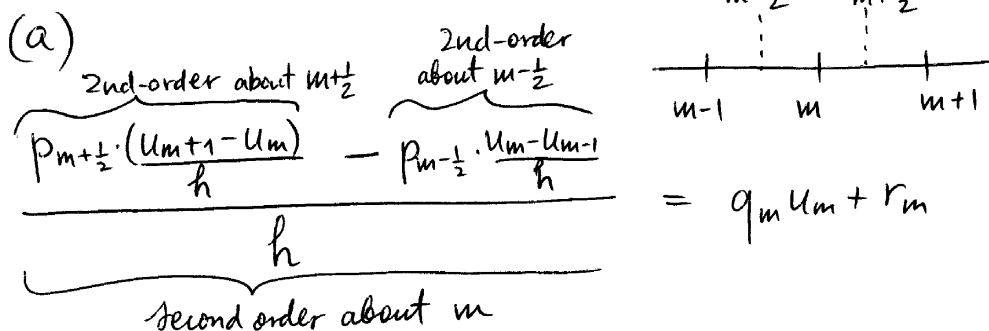 (a)
2nd-order about m+½
2nd-order
about m-½
(p_{m+½}·(u_{m+1} - u_m)/h - p_{m-½}·(u_m - u_{m-1})/h)/h = q_m u_m + r_m
second order about m
m-1 m m+1